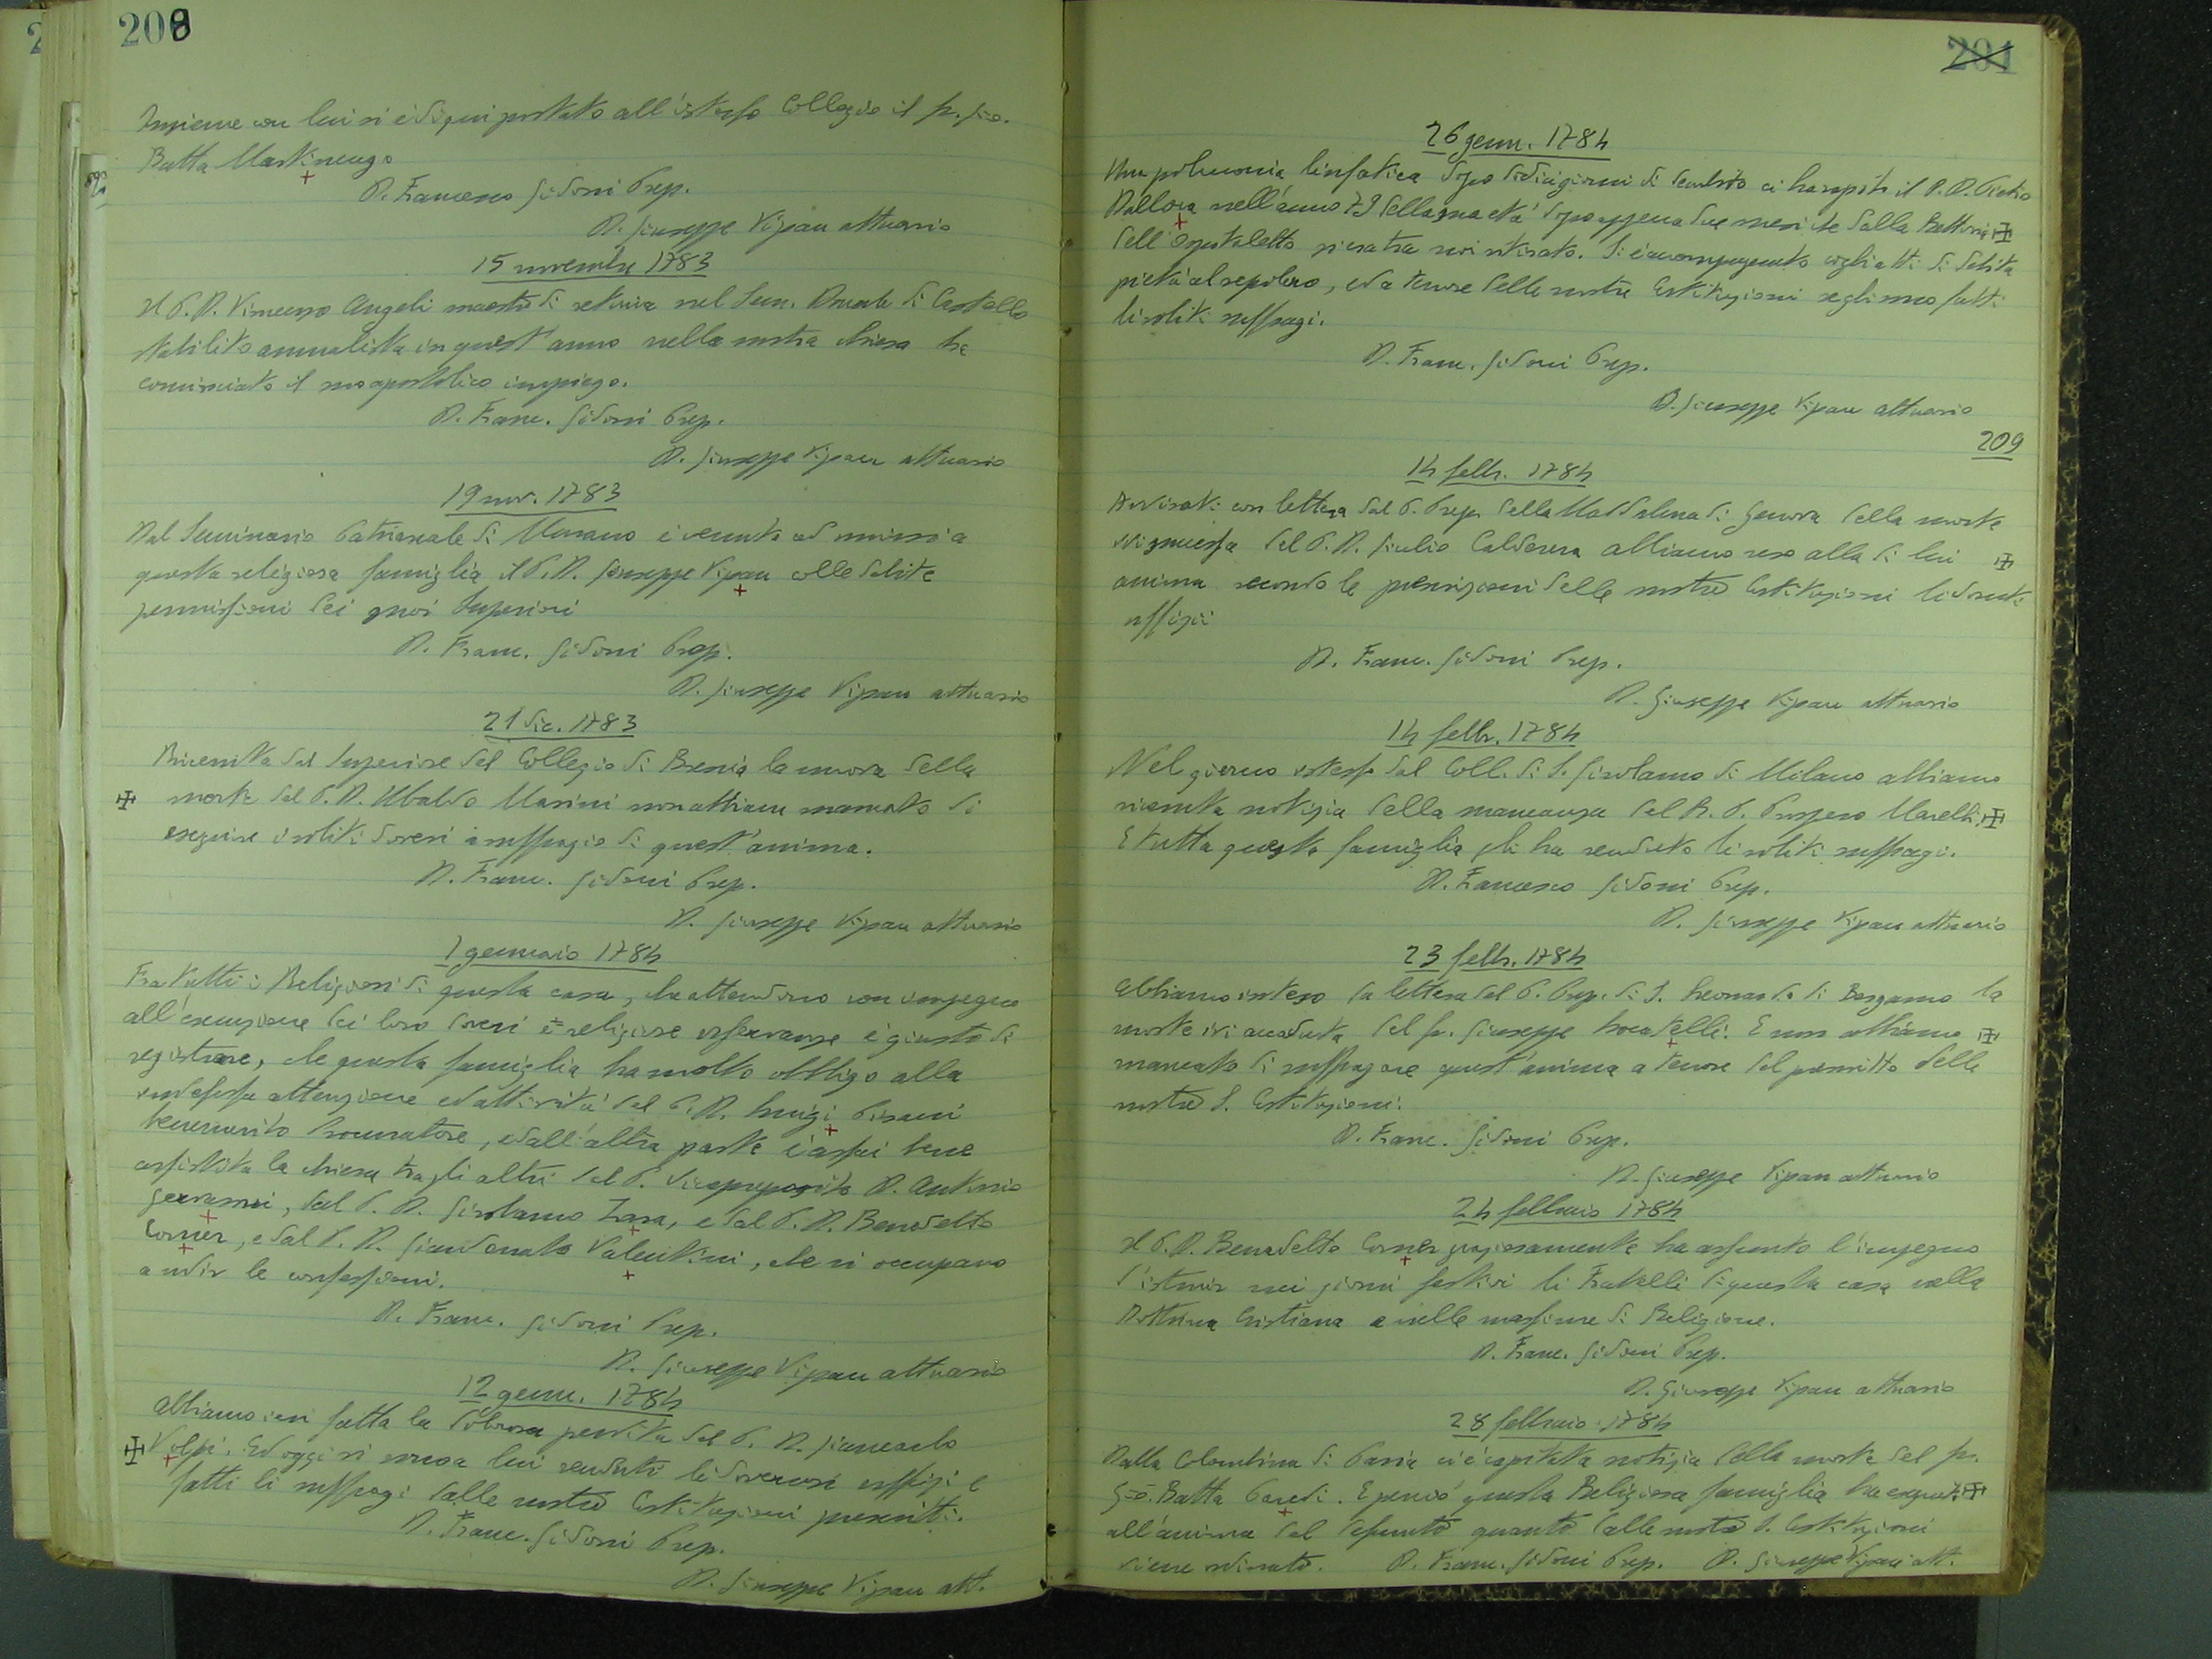 208
Insieme con lui si è di qui portato all'istesso Collegio il fr. Gio.
Batta Martinengo
D. Francesco Gidoni Prep.
D. Giuseppe Vipau attuario
15 novembre 1783
Il P. D. Vincenzo Angeli maestro di retorica nel Sem. Ducale di Castello
stabilito annualista in quest'anno nella nostra chiesa ha
cominciato il suo apostolico impiego.
D. Franc. Gidoni Prep.
D. Giuseppe Vipau attuario
19 nov. 1783
Dal Seminario Patriarcale di Murano è venuto ad unirsi a
questa religiosa famiglia il P. D. Giuseppe Vipau colle solite
permissioni dei suoi Superiori
D. Franc. Gidoni Prep.
D. Giuseppe Vipau attuario
21 dic. 1783
Ricevuta dal Superiore del Collegio di Brescia la nuova della
morte del P. D. Ubaldo Masini non abbiam mancato di
eseguire i soliti doveri a suffragio di quest'anima.
D. Franc. Gidoni Prep.
D. Giuseppe Vipau attuario
1 gennaio 1784
Fra tutti i Religiosi di questa casa, che attendono con impegno
all'esecuzione dei loro doveri e religiose osservanze è giusto di
registrare, che questa famiglia ha molto obbligo alla
indefessa attenzione ed attività del P. D. Luigi Pisani
benemerito Procuratore, e dall'altra parte è assai bene
assistita la chiesa tra gli altri dal P. Vicepreposito D. Antonio
Gervasoni, dal P. D. Girolamo Zara, e dal P. D. Benedetto
Corner, e dal P. D. Giandonato Valentini, che si occupano
a udir le confessioni.
D. Franc. Gidoni Prep.
D. Giuseppe Vipau attuario
12 genn. 1784
Abbiamo ieri fatta la dolorosa perdita del P. D. Giancarlo
Volpi. Ed oggi si sono a lui renduti li doverosi uffizi e
fatti li suffragi dalle nostre Costituzioni prescritti.
D. Franc. Gidoni Prep.
D. Giuseppe Vipau att.
201
26 genn. 1784
Una polmonia linfatica dopo sedici giorni di decubito ci ha rapito il P. D. Pietro
Dallora nell'anno 79 della sua età dopo appena due mesi che dalla Rettoria
dell'Ospitaletto si era tra noi ritirato. Si è accompagnato cogli atti di solita
pietà al sepolcro, ed a tenore delle nostre Costituzioni se gli sono fatti
li soliti suffragi.
D. Franc. Gidoni Prep.
D. Giuseppe Vipau attuario
209
14 febb. 1784
Avvisati con lettera dal P. Prep. della Maddalena di Genova della morte
ivi successa del P. D. Giulio Calderera abbiamo reso alla di lui
anima secondo le prescrizioni delle nostre Costituzioni li dovuti
uffizii
D. Franc. Gidoni Prep.
D. Giuseppe Vipau attuario
14 febb. 1784
Nel giorno istesso dal Coll. di S. Girolamo di Milano abbiamo
ricevuta notizia della mancanza del R. P. Prospero Marelli.
E tutta questa famiglia gli ha renduto li soliti suffragi.
D. Francesco Gidoni Prep.
D. Giuseppe Vipau attuario
23 febb. 1784
Abbiamo inteso da lettera del P. Prep. di S. Leonardo di Bergamo la
morte ivi accaduta del fr. Giuseppe Locatelli. E non abbiamo
mancato di suffragare quest'anima a tenore del prescritto delle
nostre S. Costituzioni.
D. Franc. Gidoni Prep.
D. Giuseppe Vipau attuario
24 febbraio 1784
Il P. D. Benedetto Corner graziosamente ha assunto l'impegno
d'istruir nei giorni festivi li Fratelli di questa casa nella
Dottrina Cristiana e nelle massime di Religione.
D. Franc. Gidoni Prep.
D. Giuseppe Vipau attuario
28 febbraio 1784
Dalla Colombina di Pavia ci è capitata notizia della morte del fr.
Gio. Batta Paredi. E perciò questa Religiosa famiglia ha eseguito
all'anima del defunto quanto dalle nostre S. Costituzioni
viene ordinato. D. Franc. Gidoni Prep. D. Giuseppe Vipau att.